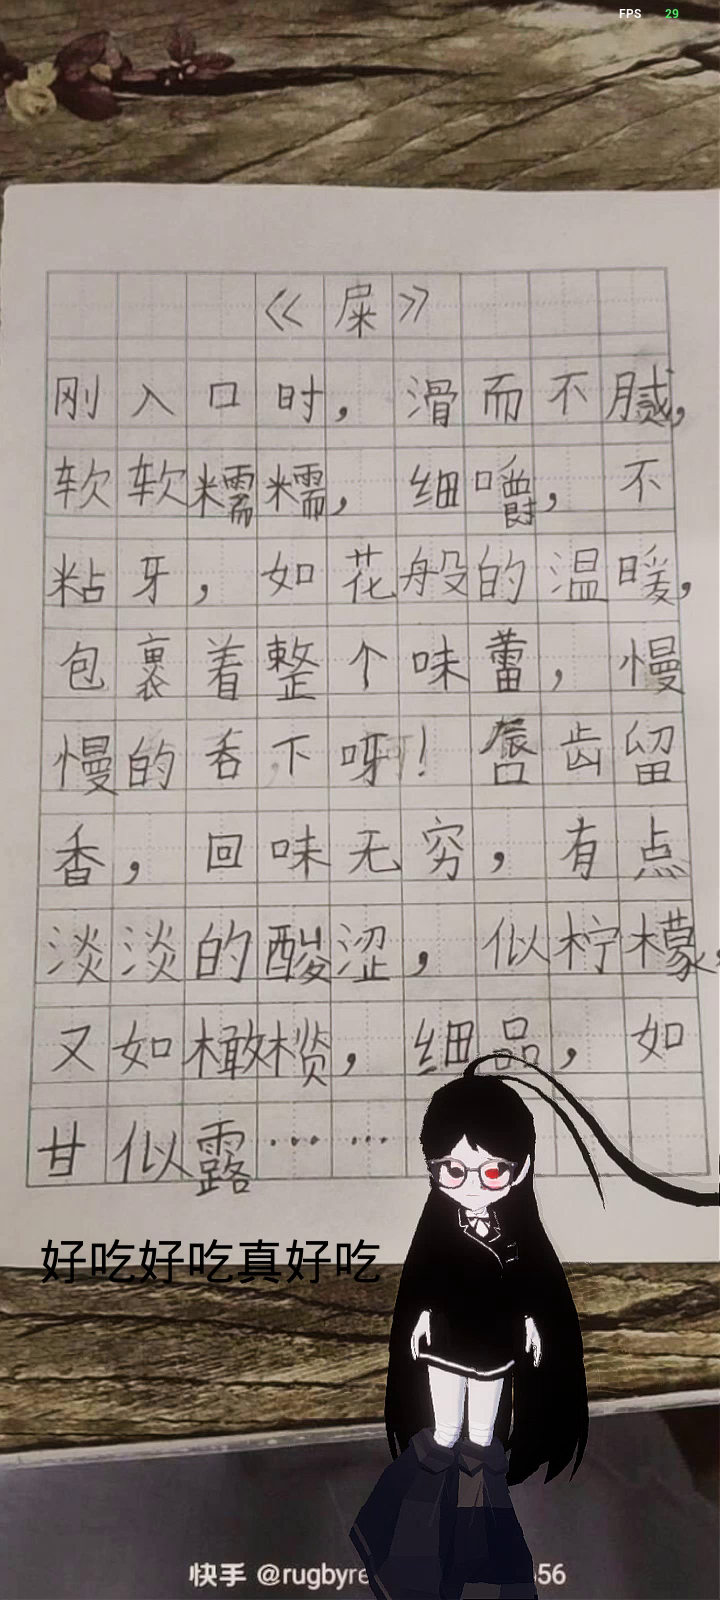 FPS 29
《屎》
刚入口时，滑而不腻，
软软糯糯，细嚼，不
粘牙，如花般的温暖，
包裹着整个味蕾，慢
慢的吞下呀！唇齿留
香，回味无穷，有点
淡淡的酸涩，似柠檬，
又如橄榄，细品，如
甘似露……
好吃好吃真好吃
快手 @rugbyre 56